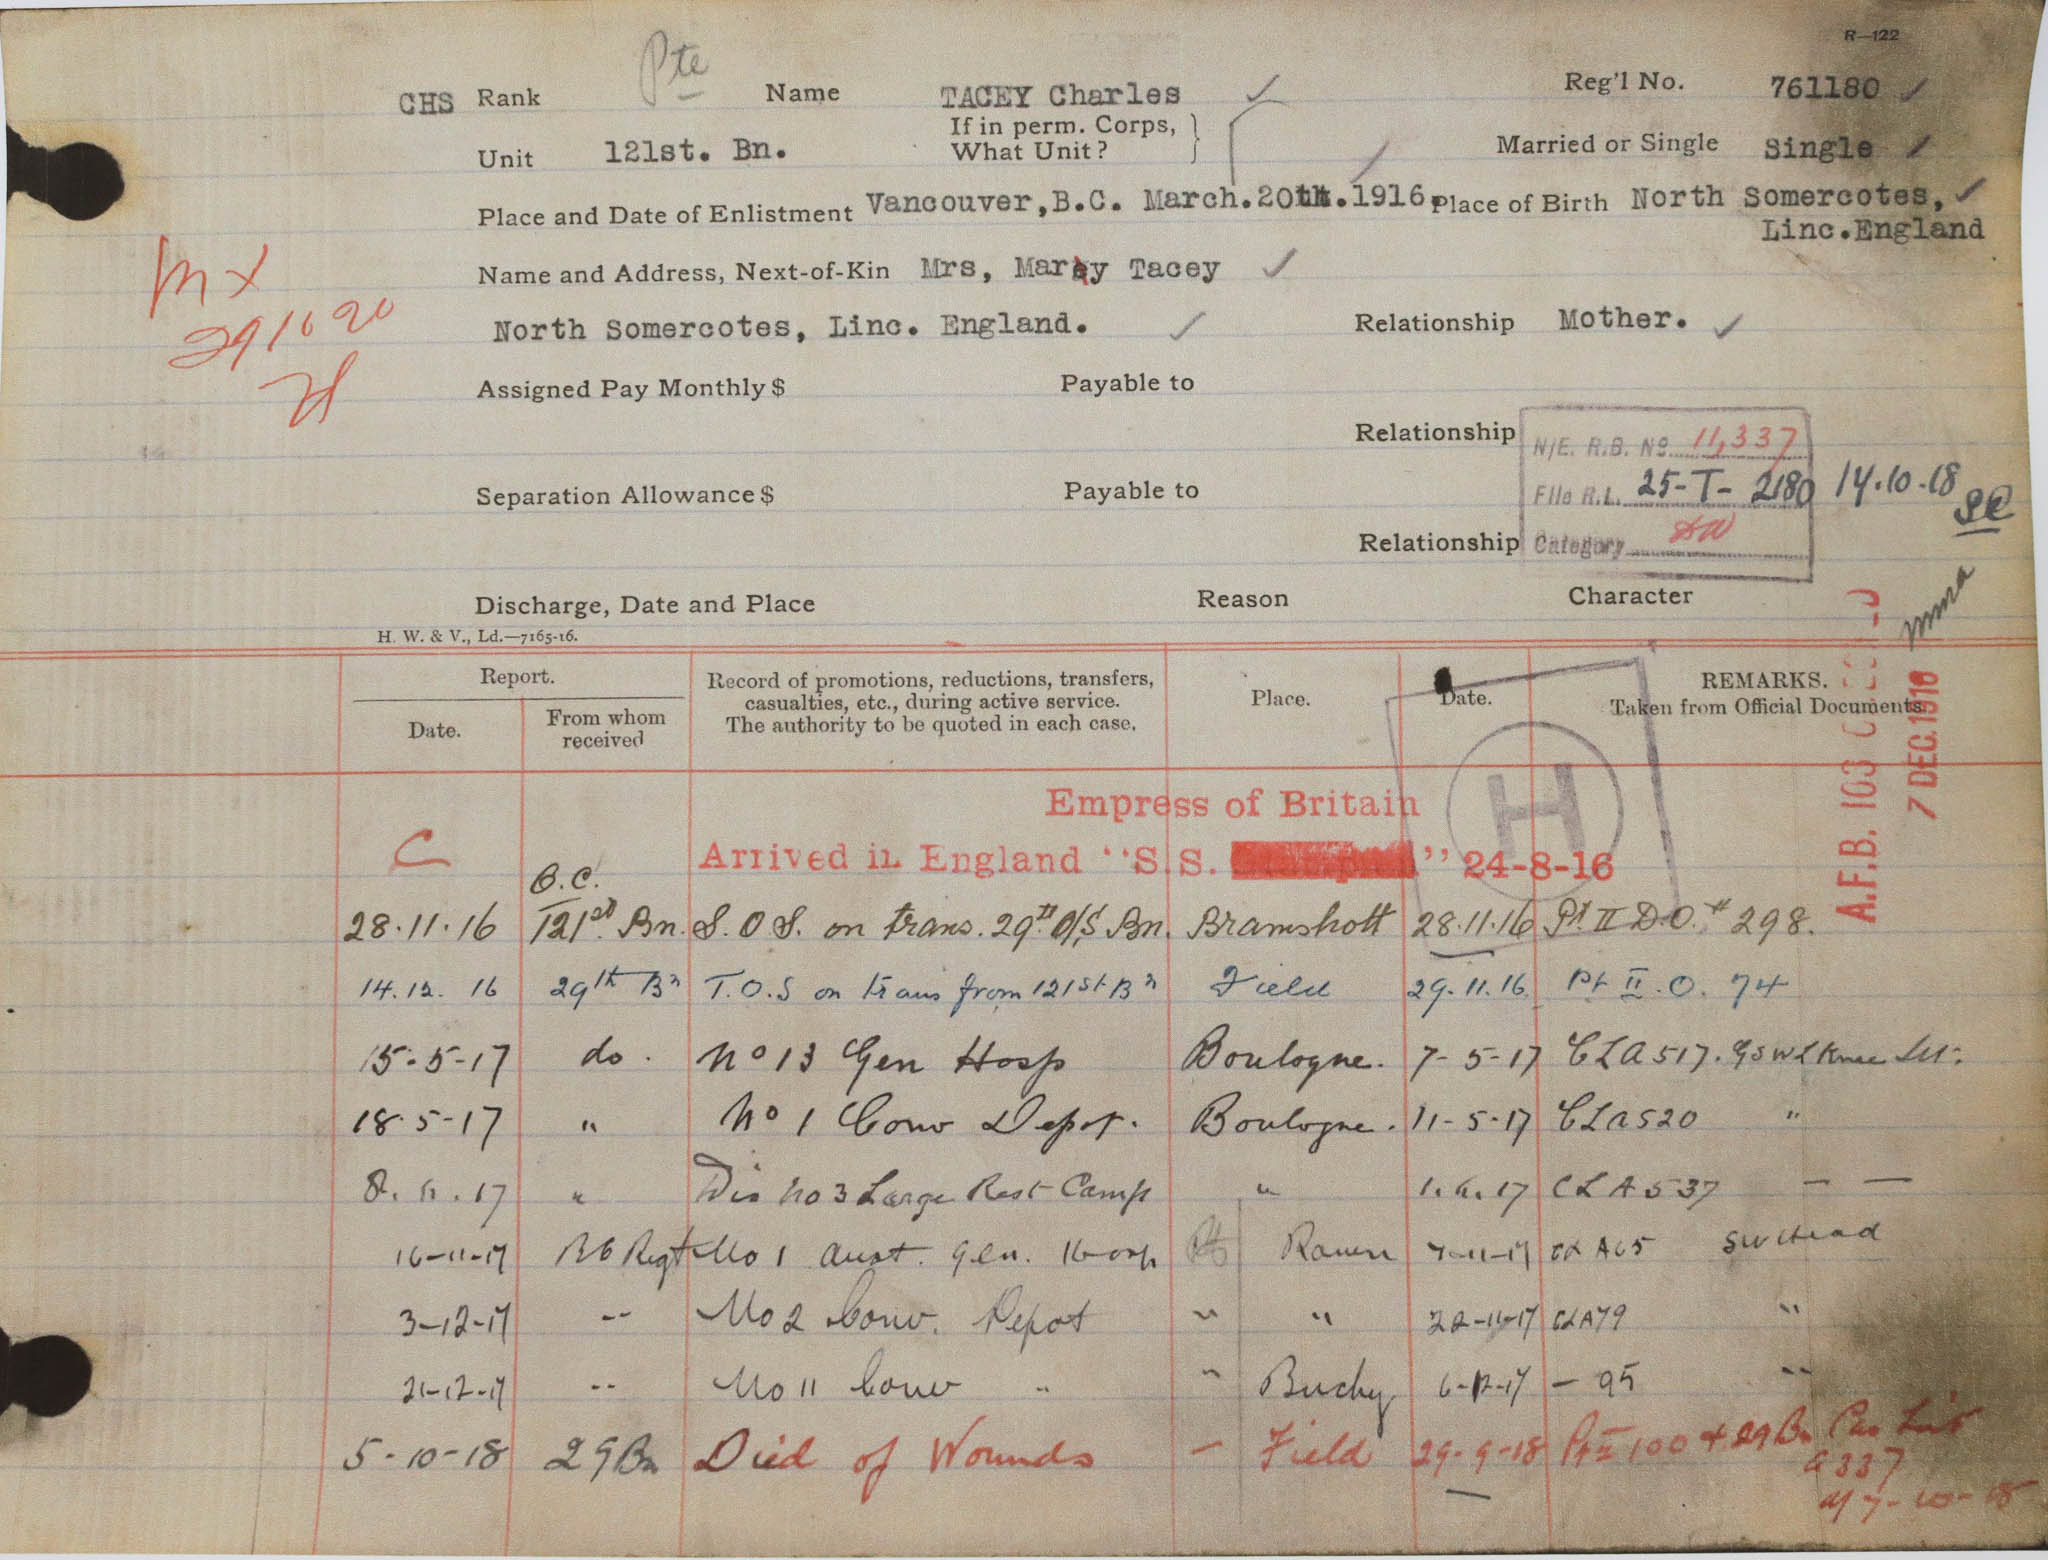 R—122
Pte
CHS Rank Name TACEY Charles Reg'l No. 761180
If in perm. Corps,
What Unit?
Unit 121st. Bn. Married or Single Single
Place and Date of Enlistment Vancouver,B.C. March.20th.1916. Place of Birth North Somercotes,
Linc.England
Name and Address, Next-of-Kin Mrs, Mary Tacey
North Somercotes, Linc. England. Relationship Mother.
Assigned Pay Monthly $ Payable to
Relationship
N/E. R.B. No. 11,337
Separation Allowance $ Payable to
File R.L. 25-T-2180 14.10.18
Relationship
Category DW
Discharge, Date and Place Reason Character
H. W. & V., Ld.—7165-16.
Report.
Date.
From whom
received
Record of promotions, reductions, transfers,
casualties, etc., during active service.
The authority to be quoted in each case.
Place.
Date.
REMARKS.
Taken from Official Documents.
A.F.B. 103
7 DEC. 1918
H
Empress of Britain
C
Arrived in England "S.S. " 24-8-16
O.C.
28.11.16 121st Bn. S.O.S. on trans. 29th O/S Bn. Bramshott 28.11.16 Pt. II D.O. # 298.
14.12.16 29th Bn T.O.S on trans from 121st Bn Field 29.11.16 Pt II.O. 74
15-5-17 do. No 13 Gen Hosp Boulogne. 7-5-17 CLA517. GSW L Knee
18.5-17 " No 1 Conv Depot. Boulogne. 11-5-17 CLA520 "
8.6.17 " Dis No 3 Large Rest Camp " 1.6.17 CLA537 — —
16-11-17 BC Regt No 1 Aust. Gen. Hosp Rouen 7-11-17 CLA65 SW Head
3-12-17 -- No 2 Conv. Depot " " 22-11-17 CLA79 "
21-12-17 -- No 11 Conv " " Buchy 6-12-17 — 95 "
5-10-18 29Bn Died of Wounds — Field 29-9-18 Pt II 100 29Bn Cas List
A337
7-10-18